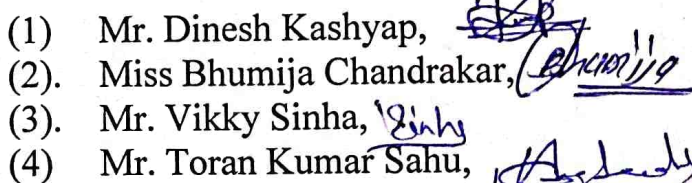 (1) Mr. Dinesh Kashyap,
(2). Miss Bhumija Chandrakar, Bhumija
(3). Mr. Vikky Sinha, Sinha
(4) Mr. Toran Kumar Sahu,